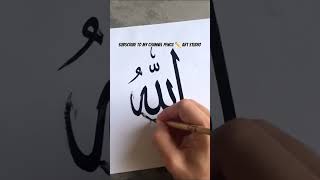 SUBSCRIBE TO MY CHANNEL PENCIL ✏️ ART STUDIO
الله